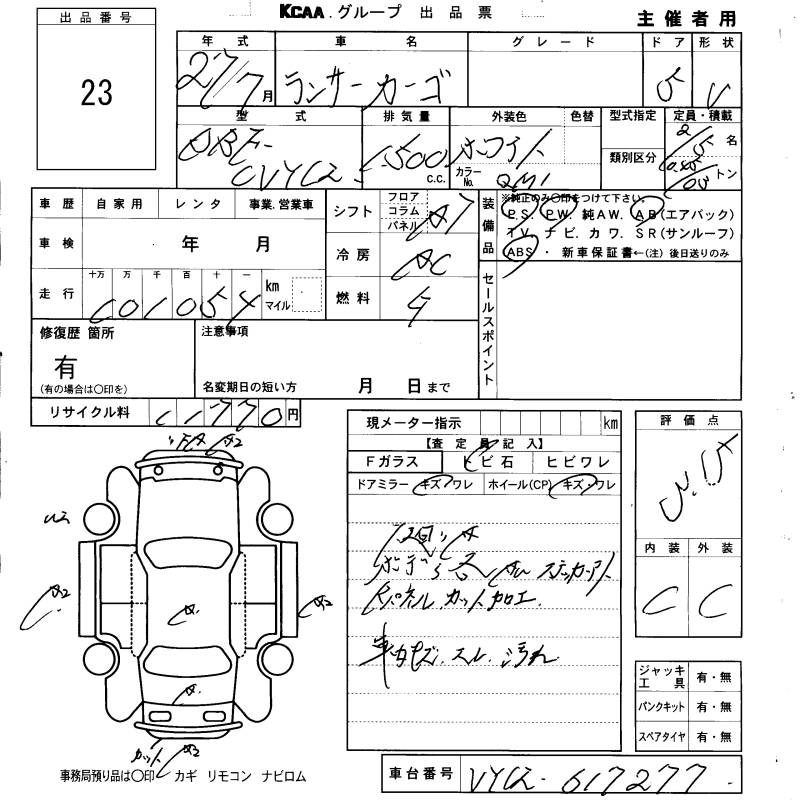 KCAA.グループ 出品票
主催者用
出品番号
23
年式 車名 グレード ドア 形状
27/7月 ランサーカーゴ 5 V
型式 排気量 外装色 色替 型式指定 定員・積載
DBF-
CVYC12 1500 c.c. ホワイト カラーNo. QM1 類別区分 2/5名 トン
車歴 自家用 レンタ 事業.営業車
シフト フロア コラム パネル AT
装備品 ※純正のみ〇印をつけて下さい。
P.S. PW. 純AW. A.B(エアバック)
T.V. ナビ.カワ.SR(サンルーフ)
ABS・新車保証書←(注)後日送りのみ
車検 年 月
冷房 AC
走行 十万 万 千 百 十 一 km マイル
101054
燃料 ガ
セールスポイント
修復歴 箇所
有
(有の場合は〇印を)
注意事項
名変期日の短い方 月 日まで
リサイクル料 11770円
現メーター指示 km
【査定員記入】
Fガラス トビ石 ヒビワレ
ドアミラー キズ・ワレ ホイール(CP) キズ・ワレ
評価点
内装 外装
C C
A2
A2
A2
A2
カット A2
パネル カット 加工.
車内キズ.スレ.汚れ
ジャッキ 工具 有・無
パンクキット 有・無
スペアタイヤ 有・無
事務局預り品は〇印 カギ リモコン ナビロム
車台番号 VY12-617277